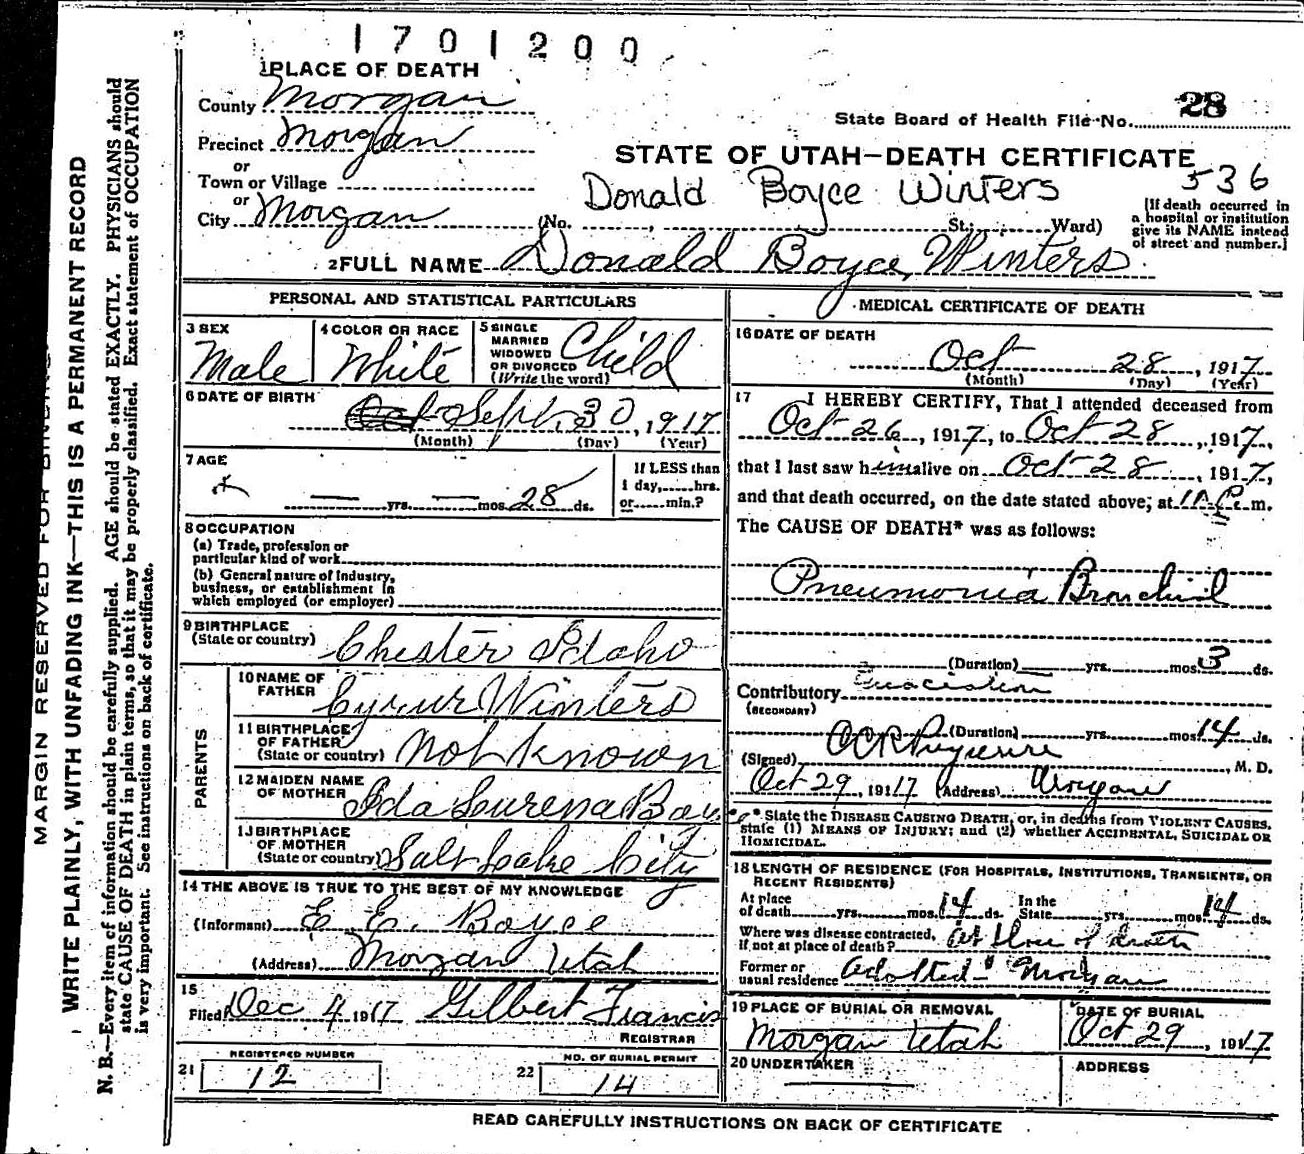 1701200
1 PLACE OF DEATH
County Morgan
Precinct Morgan
or
Town or Village
or
City Morgan
State Board of Health File No. 28
STATE OF UTAH—DEATH CERTIFICATE
536
Donald Boyce Winters
(No. , St.; Ward)
[If death occurred in
a hospital or institution
give its NAME instead
of street and number.]
2 FULL NAME Donald Boyce Winters
PERSONAL AND STATISTICAL PARTICULARS
3 SEX
Male
4 COLOR OR RACE
White
5 SINGLE
MARRIED
WIDOWED
OR DIVORCED
(Write the word)
Child
6 DATE OF BIRTH
Sept. 30, 1917
(Month) (Day) (Year)
7 AGE
— yrs. — mos. 28 ds.
If LESS than
1 day, hrs.
or min.?
8 OCCUPATION
(a) Trade, profession or
particular kind of work
(b) General nature of Industry,
business, or establishment in
which employed (or employer)
9 BIRTHPLACE
(State or country) Chester Idaho
PARENTS
10 NAME OF
FATHER Cyrus Winters
11 BIRTHPLACE
OF FATHER
(State or country) Not Known
12 MAIDEN NAME
OF MOTHER Ida Lurena Boyce
13 BIRTHPLACE
OF MOTHER
(State or country) Salt Lake City
14 THE ABOVE IS TRUE TO THE BEST OF MY KNOWLEDGE
(Informant) E. E. Boyce
(Address) Morgan Utah
15
Filed Dec 4 1917 Gilbert Francis
REGISTRAR
21 REGISTERED NUMBER
12
22 NO. OF BURIAL PERMIT
14
MEDICAL CERTIFICATE OF DEATH
16 DATE OF DEATH
Oct 28, 1917
(Month) (Day) (Year)
17 I HEREBY CERTIFY, That I attended deceased from
Oct 26, 1917, to Oct 28, 1917,
that I last saw him alive on Oct 28, 1917,
and that death occurred, on the date stated above, at m.
The CAUSE OF DEATH* was as follows:
Pneumonia Bronchial
(Duration) — yrs. mos. 3 ds.
Contributory
(SECONDARY)
(Duration) yrs. mos. 14 ds.
(Signed) , M. D.
Oct 29, 1917 (Address) Morgan
* State the DISEASE CAUSING DEATH, or, in deaths from VIOLENT CAUSES,
state (1) MEANS OF INJURY; and (2) whether ACCIDENTAL, SUICIDAL OR
HOMICIDAL.
18 LENGTH OF RESIDENCE (FOR HOSPITALS, INSTITUTIONS, TRANSIENTS, OR
RECENT RESIDENTS)
At place
of death yrs. mos. 14 ds.
In the
State yrs. mos. 14 ds.
Where was disease contracted,
if not at place of death? at place of death
Former or
usual residence adopted - Morgan
19 PLACE OF BURIAL OR REMOVAL
Morgan Utah
DATE OF BURIAL
Oct 29, 1917
20 UNDERTAKER
ADDRESS
READ CAREFULLY INSTRUCTIONS ON BACK OF CERTIFICATE
MARGIN RESERVED FOR BINDING
WRITE PLAINLY, WITH UNFADING INK—THIS IS A PERMANENT RECORD
N. B.—Every item of information should be carefully supplied. AGE should be stated EXACTLY. PHYSICIANS should
state CAUSE OF DEATH in plain terms, so that it may be properly classified. Exact statement of OCCUPATION
is very important. See instructions on back of certificate.